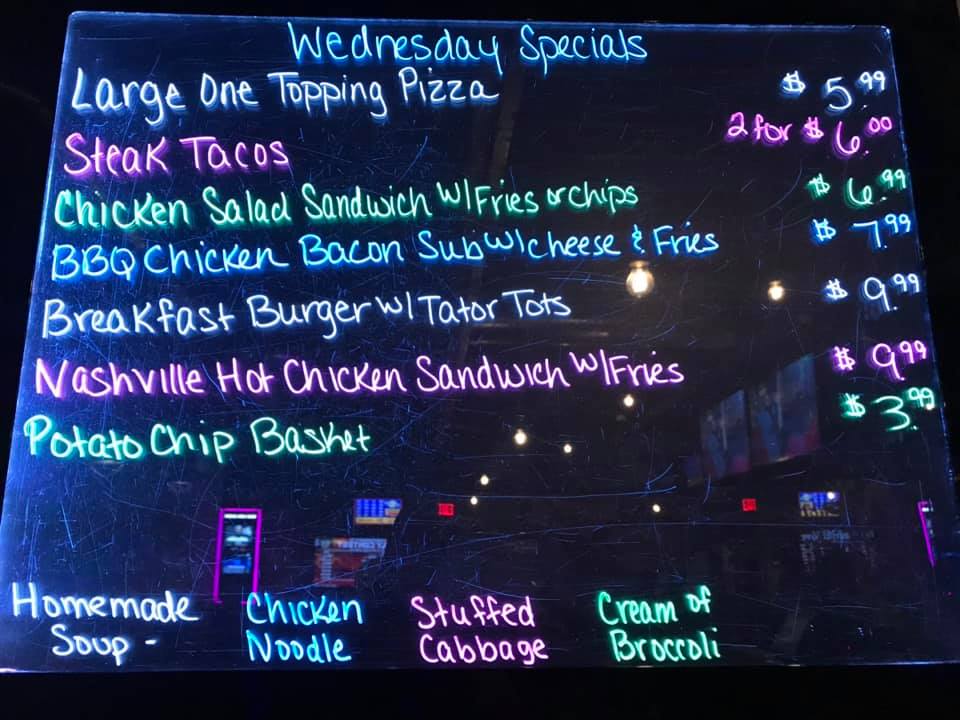 Wednesday Specials
Large One Topping Pizza $5.99
Steak Tacos 2 for $6.00
Chicken Salad Sandwich W/Fries or chips $6.99
BBQ Chicken Bacon Sub w/cheese & Fries $7.99
Breakfast Burger w/ Tator Tots $9.99
Nashville Hot Chicken Sandwich W/Fries $9.99
Potato Chip Basket $3.99
Homemade Soup - Chicken Noodle Stuffed Cabbage Cream of Broccoli